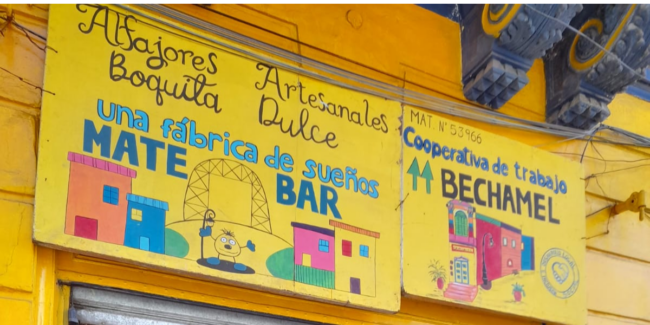 Alfajores Artesanales
Boquita Dulce
una fábrica de sueños
MATE BAR
MAT. N° 53966
Cooperativa de trabajo
BECHAMEL